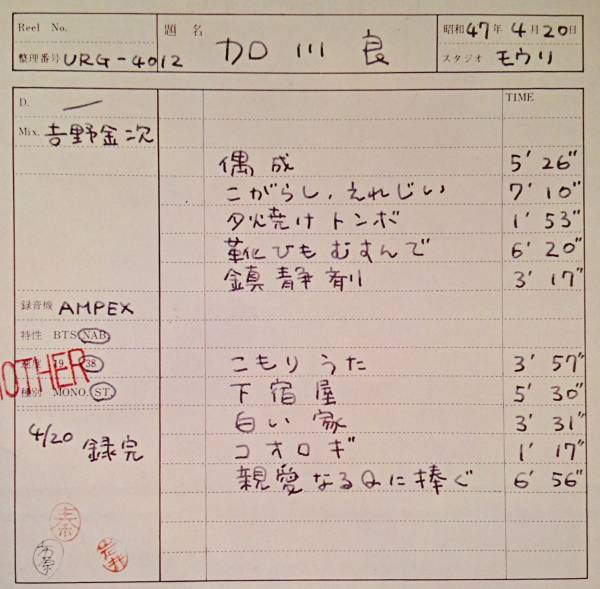 Reel No.
題名 加川良
昭和47年4月20日
整理番号 URG-4012
スタジオ モウリ
D. —
TIME
Mix. 吉野金次
偶成 5′ 26″
こがらし,えれじい 7′ 10″
夕焼けトンボ 1′ 53″
靴ひもむすんで 6′ 20″
鎮静剤 3′ 17″
録音機 AMPEX
特性 BTS NAB.
こもりうた 3′ 57″
19. 38
MOTHER
下宿屋 5′ 30″
種別 MONO. ST.
白い家 3′ 31″
4/20 録完
コオロギ 1′ 17″
親愛なるQに捧ぐ 6′ 56″